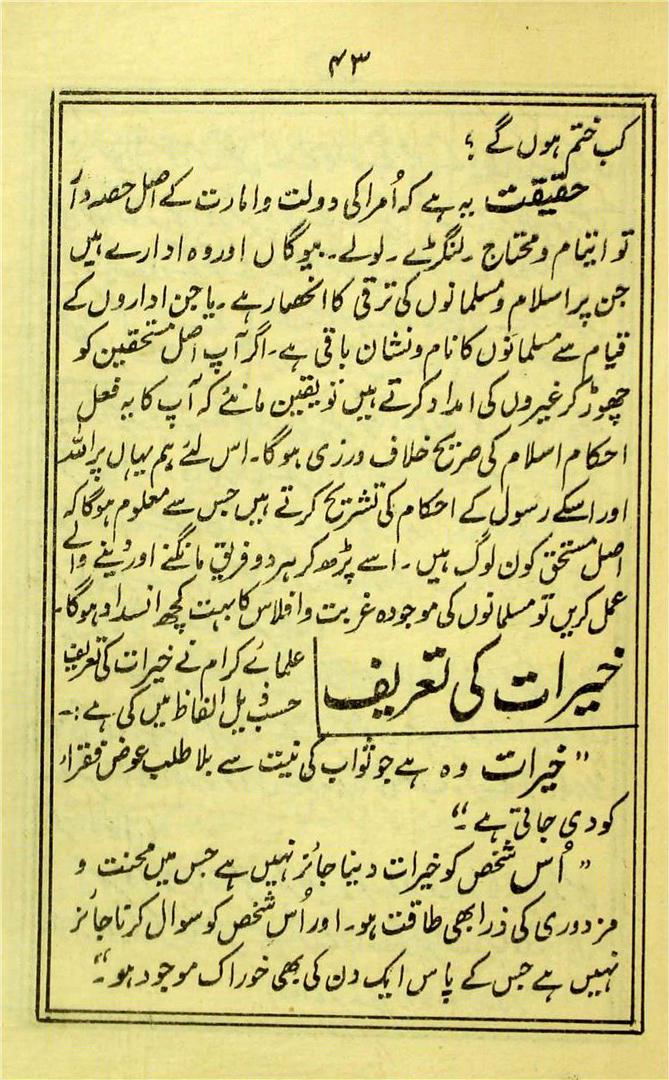 ۴۳
کب ختم ہوں گے ؟
حقیقت یہ ہے کہ اُمرا کی دولت و امارت کے اصل حصہ دار
تو ایتام و محتاج ۔ لنگڑے ۔ لولے ۔ بیوگاں اور وہ ادارے ہیں
جن پر اسلام و مسلمانوں کی ترقی کا انحصار ہے ۔ یا جن اداروں کے
قیام سے مسلمانوں کا نام و نشان باقی ہے ۔ اگر آپ اصل مستحقین کو
چھوڑ کر غیروں کی امداد کرتے ہیں تو یقین مانئے کہ آپ کا یہ فعل
احکام اسلام کی صریح خلاف ورزی ہوگا ۔ اس لئے ہم یہاں پر اللہ
اور اسکے رسول کے احکام کی تشریح کرتے ہیں جس سے معلوم ہوگا کہ
اصل مستحق کون لوگ ہیں ۔ اسے پڑھ کر ہر دو فریق مانگنے اور دینے والے
عمل کریں تو مسلمانوں کی موجودہ غربت و افلاس کا بہت کچھ انسداد ہوگا ۔
خیرات کی تعریف
علمائے کرام نے خیرات کی تعریف
حسب ذیل الفاظ میں کی ہے :۔
"خیرات وہ ہے جو ثواب کی نیت سے بلا طلب عوض فقراء
کو دی جاتی ہے ۔"
"اُس شخص کو خیرات دینا جائز نہیں ہے جس میں محنت و
مزدوری کی ذرا بھی طاقت ہو ۔ اور اُس شخص کو سوال کرنا جائز
نہیں ہے جس کے پاس ایک دن کی بھی خوراک موجود ہو ۔"